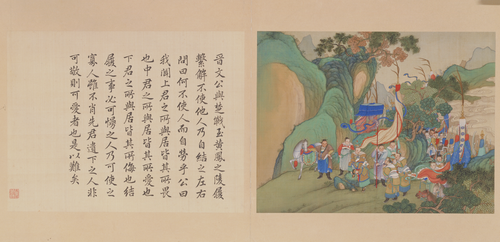 晉文公與楚戰至黃鳳之陵履
繫解不使他人乃自結之左右
問曰何不使人而自勞乎公曰
我聞上君之所與居皆其所畏
也中君之所與居皆其所愛也
下君之所與居皆其所侮也結
履之事必可愓之人乃可使之
寡人雖不肖先君遺下之人非
可敬則可愛者也是以難矣